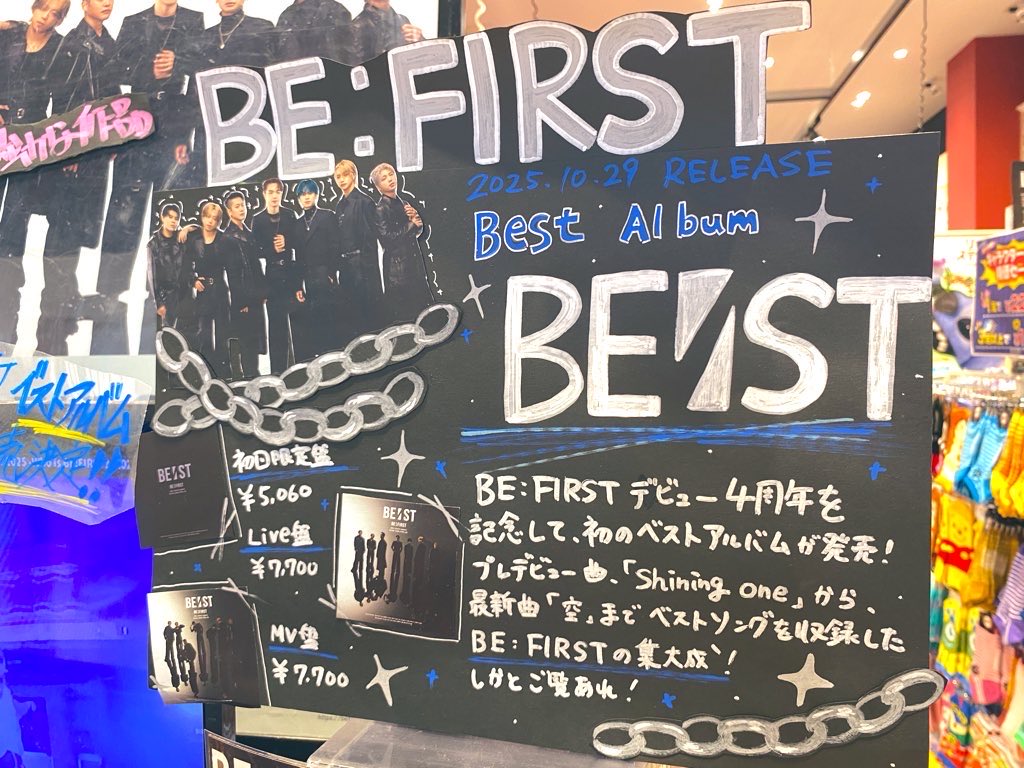 BE:FIRST
2025.10.29 RELEASE
Best Album
BE:ST
初回限定盤
¥5,060
Live盤
¥7,700
MV盤
¥7,700
BE:FIRST デビュー4周年を
記念して、初のベストアルバムが発売!
プレデビュー曲、「Shining one」から、
最新曲「空」まで ベストソングを収録した
BE:FIRSTの集大成!
しかとご覧あれ!
BE:ST
BE:ST
BE:ST
ベストアルバム